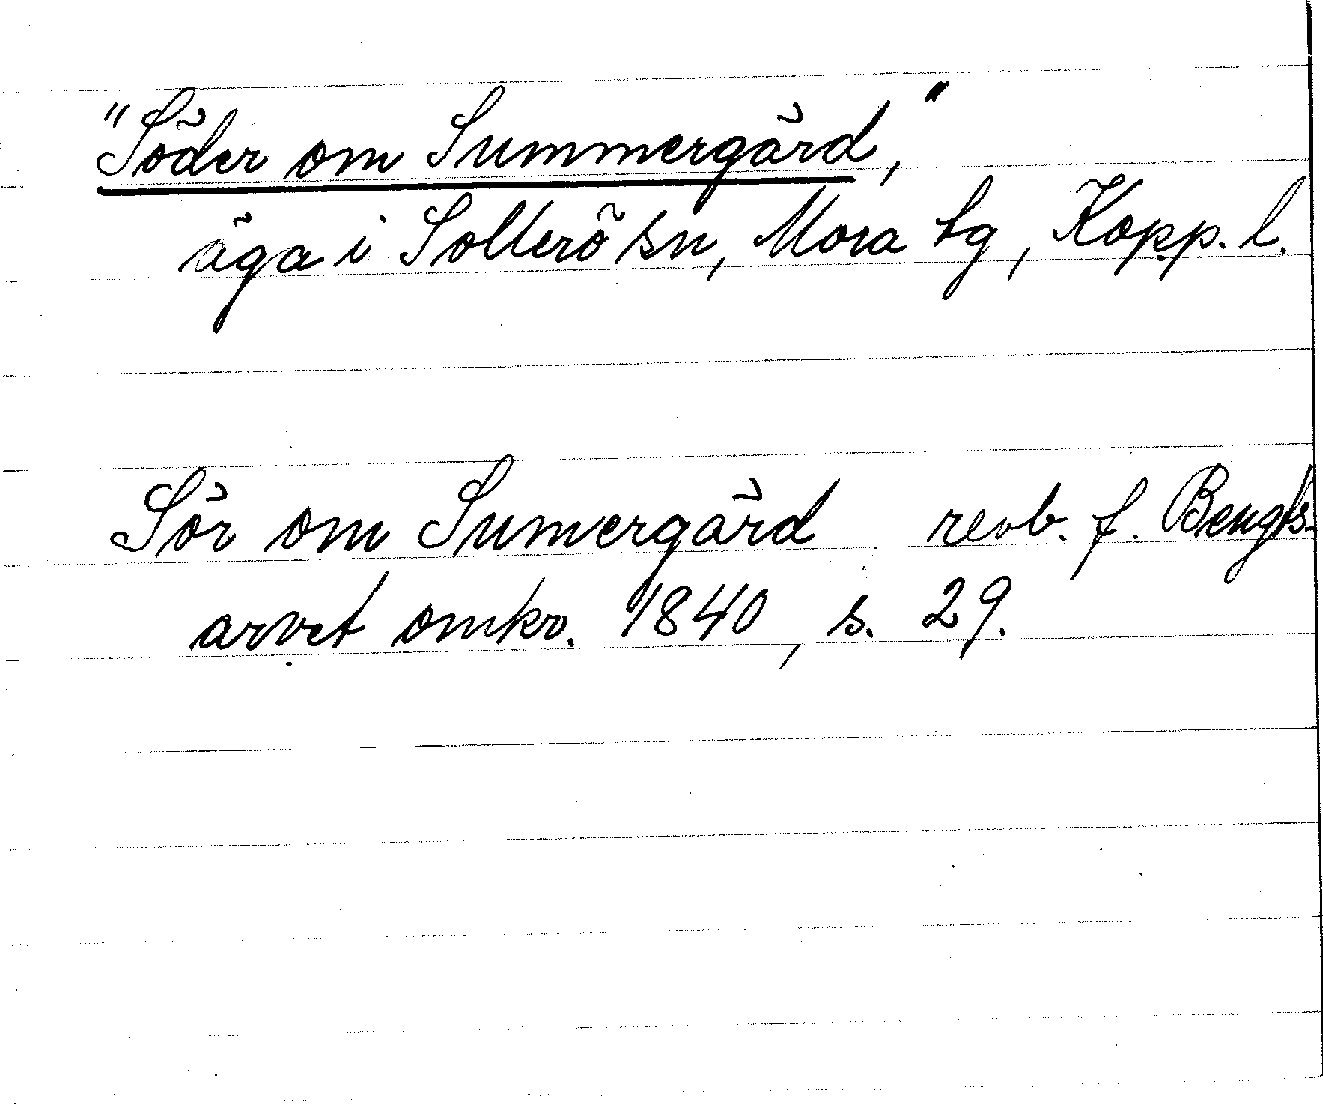 "Söder om Summergård,"
äga i Sollerö sn, Mora tg, Kopp. l.
Sör om Sumergård revb. f. Bengts-
arvet omkr. 1840, s. 29.